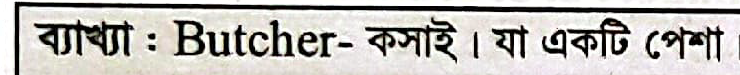 ব্যাখ্যা : Butcher- কসাই। যা একটি পেশা।